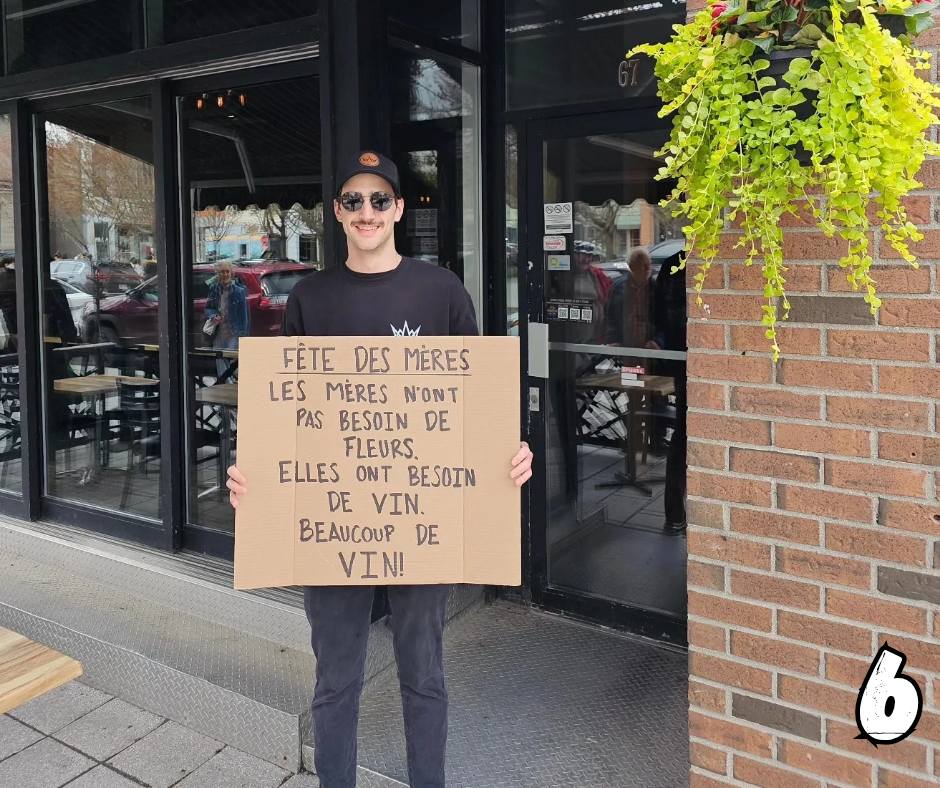 67
FÊTE DES MÈRES
LES MÈRES N'ONT
PAS BESOIN DE
FLEURS.
ELLES ONT BESOIN
DE VIN.
BEAUCOUP DE
VIN!
6